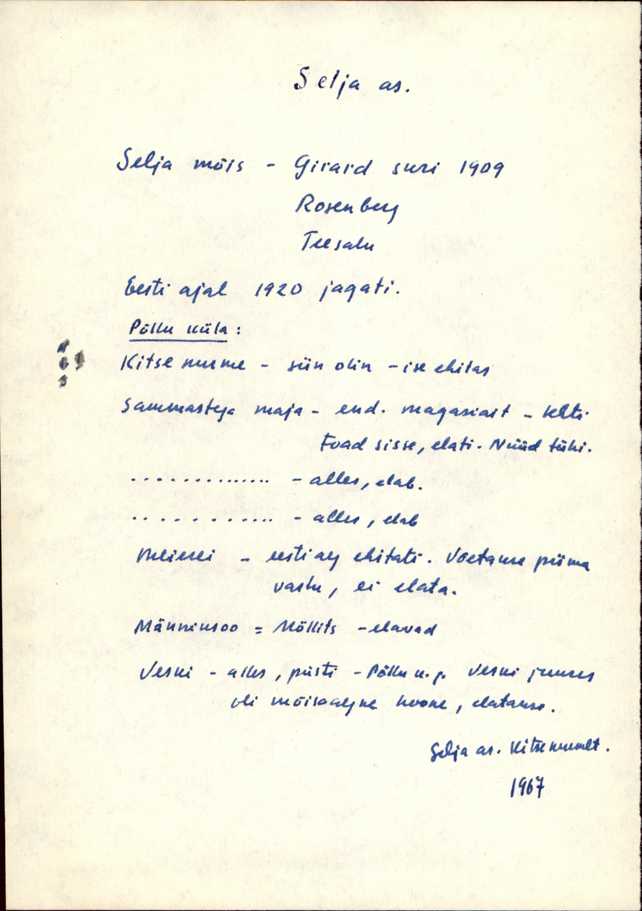 Selja as.
Selja mõis - Girard suri 1909
Rosenberg
Teesalu
Eesti ajal 1920 jagati.
Põllu küla:
Kitsenurme - siin olin - ise ehitas
Sammastega maja - end. magasiait - tehti
Toad sisse, elati. Nüüd tühi.
............. - alles, elab.
............. - alles, elab
Meierei - eesti aeg ehitati. Võetakse piima
vastu, ei elata.
Männiksoo = Möllits - elavad
Veski - alles, püsti - Põllu k. p. Veski juures
oli mõisaaegne hoone, elatakse.
Selja as. Kitsenurmelt.
1967